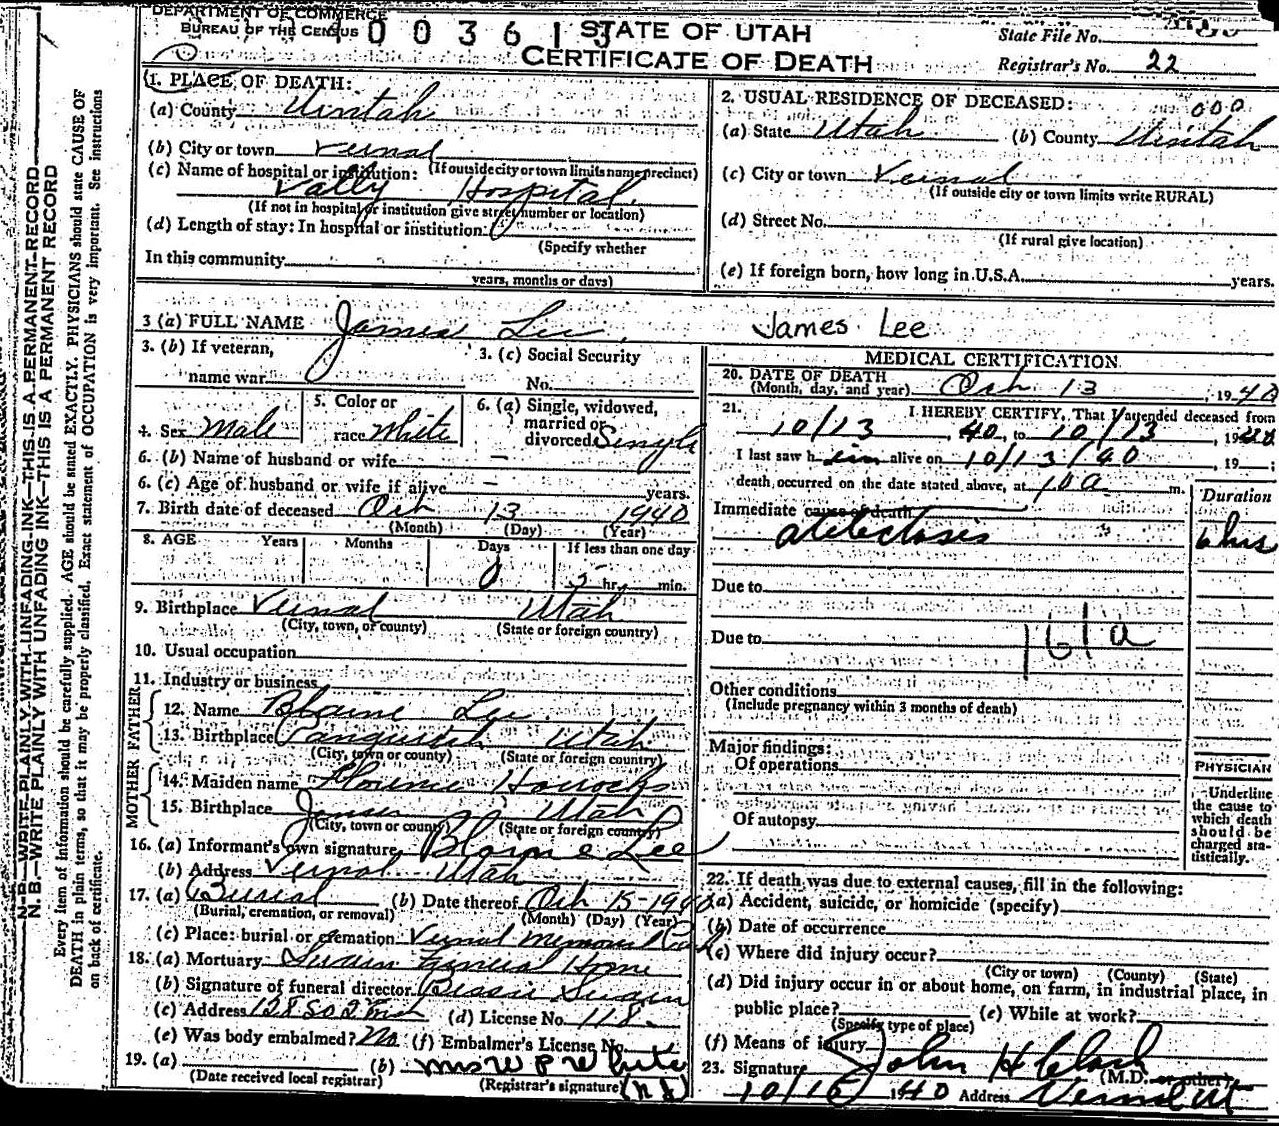 DEPARTMENT OF COMMERCE
BUREAU OF THE CENSUS
003613
STATE OF UTAH
CERTIFICATE OF DEATH
State File No.
Registrar's No. 22
1. PLACE OF DEATH:
(a) County Uintah
(b) City or town Vernal
(If outside city or town limits name precinct)
(c) Name of hospital or institution:
Vally Hospital
(If not in hospital or institution give street number or location)
(d) Length of stay: In hospital or institution:
(Specify whether
In this community
years, months or days)
2. USUAL RESIDENCE OF DECEASED:
000
(a) State Utah (b) County Uintah
(c) City or town Vernal
(If outside city or town limits write RURAL)
(d) Street No.
(If rural give location)
(e) If foreign born, how long in U.S.A. years.
3 (a) FULL NAME James Lee James Lee
3. (b) If veteran,
name war
3. (c) Social Security
No.
4. Sex Male
5. Color or
race White
6. (a) Single, widowed,
married or
divorced Single
6. (b) Name of husband or wife —
6. (c) Age of husband or wife if alive — years.
7. Birth date of deceased Oct 13 1940
(Month) (Day) (Year)
8. AGE Years Months Days If less than one day
0 5 hr. min.
9. Birthplace Vernal Utah
(City, town, or county) (State or foreign country)
10. Usual occupation
11. Industry or business
FATHER
12. Name Blaine Lee
13. Birthplace Panguitch Utah
(City, town or county) (State or foreign country)
MOTHER
14. Maiden name Florence Horrocks
15. Birthplace Jensen Utah
(City, town or county) (State or foreign country)
16. (a) Informant's own signature Blaine Lee
(b) Address Vernal Utah
17. (a) Burial (b) Date thereof Oct 15-1940
(Burial, cremation, or removal) (Month) (Day) (Year)
(c) Place: burial or cremation Vernal Memorial Park
18. (a) Mortuary Swain Funeral Home
(b) Signature of funeral director Bessie Swain
(c) Address 128 So 2 (d) License No. 118
(e) Was body embalmed? No (f) Embalmer's License No.
19. (a) (b) Mrs W P White
(Date received local registrar) (Registrar's signature)
MEDICAL CERTIFICATION
20. DATE OF DEATH
(Month, day, and year) Oct 13 , 1940
21. I HEREBY CERTIFY, That I attended deceased from
10/13, 40, to 10/13, 1940
I last saw him alive on 10/13/40, 19 ;
death occurred on the date stated above, at 10 a m.
Duration
Immediate cause of death
atelectasis 6 hrs
Due to
Due to
161a
Other conditions
(Include pregnancy within 3 months of death)
Major findings:
Of operations
Of autopsy
PHYSICIAN
Underline
the cause to
which death
should be
charged sta-
tistically.
22. If death was due to external causes, fill in the following:
(a) Accident, suicide, or homicide (specify)
(b) Date of occurrence
(c) Where did injury occur?
(City or town) (County) (State)
(d) Did injury occur in or about home, on farm, in industrial place, in
public place? (e) While at work?
(Specify type of place)
(f) Means of injury
23. Signature John H Clark
(M.D. or other)
10/16 1940 Address Vernal Ut
N. B.—WRITE PLAINLY WITH UNFADING INK—THIS IS A PERMANENT RECORD
N. B.—WRITE PLAINLY WITH UNFADING INK—THIS IS A PERMANENT RECORD
Every item of information should be carefully supplied. AGE should be stated EXACTLY. PHYSICIANS should state CAUSE OF
DEATH in plain terms, so that it may be properly classified. Exact statement of OCCUPATION is very important. See instructions
on back of certificate.